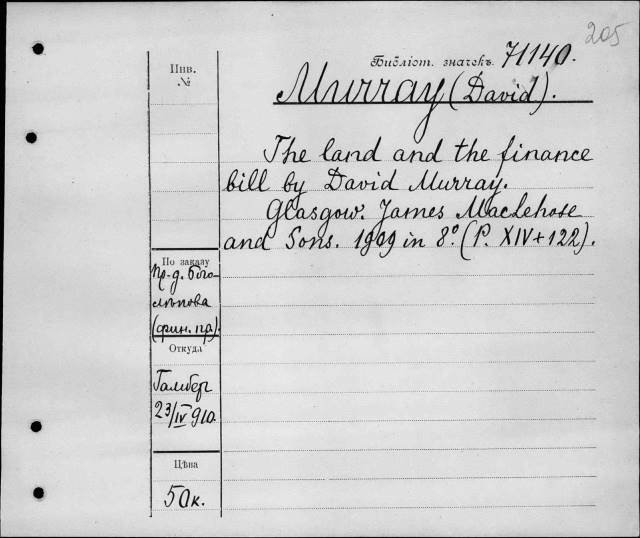 205
Библіот. значекъ. 71140.
Инв.
№
Murray (David).
The land and the finance
bill by David Murray.
Glasgow. James MacLehose
and Sons. 1909 in 8°. (P. XIV+122).
По заказу
пр-д. Бого-
лѣпова
(фин. пр.)
Откуда
Гамбер
23/IV 910.
Цѣна
50 к.